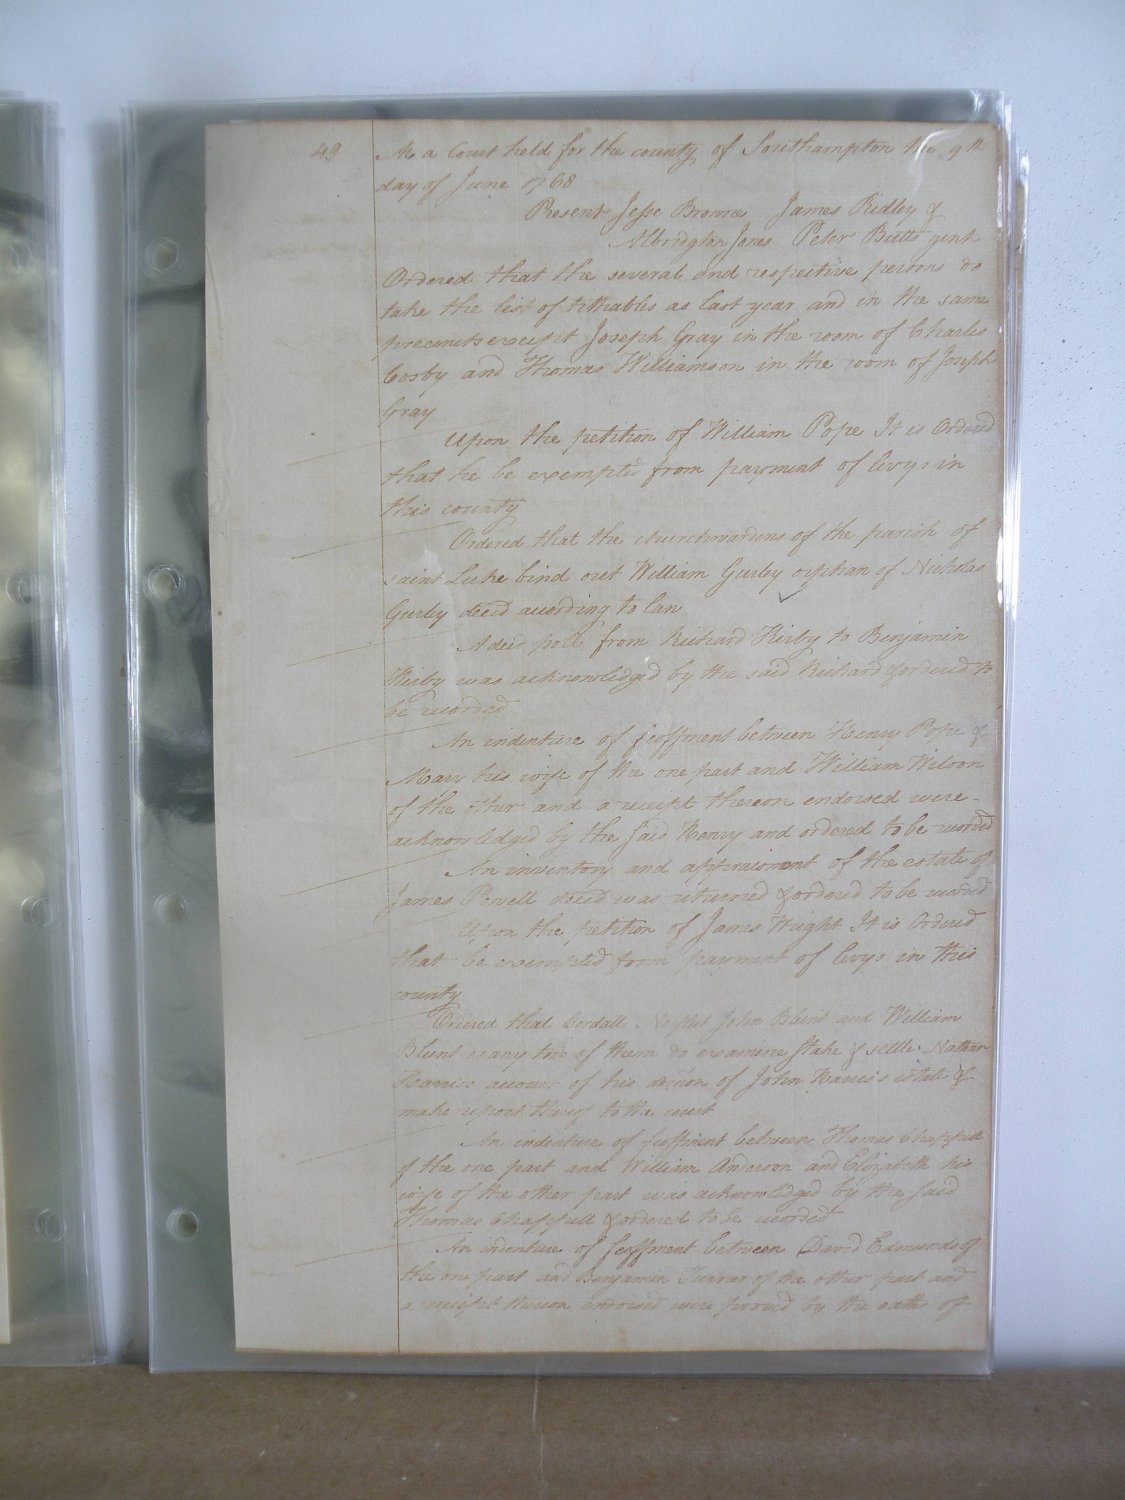 49
At a Court held for the county of Southampton the 9th
day of June 1768
Present Jesse Browne James Ridley &
Albridgton Jones Peter Butts gent
Ordered that the several and respective persons do
take the list of tithables as last year and in the same
precincts except Joseph Gray in the room of Charles
Cosby and Thomas Williamson in the room of Joseph
Gray
Upon the petition of William Pope It is Ordered
that he be exempted from payment of levys in
this county
Ordered that the churchwardens of the parish of
saint Luke bind out William Gurley orphan of Nicholas
Gurley deced according to law
A deed poll from Richard Kirby to Benjamin
Kirby was acknowledged by the said Richard & ordered to
be recorded
An indenture of feoffment between Henry Pope &
Mary his wife of the one part and William Wilson
of the other and a receipt thereon endorsed were
acknowledged by the said Henry and ordered to be recorded
An inventory and appraisment of the estate of
James Powell deced was returned & ordered to be recorded
Upon the petition of James Wright It is Ordered
that he exempted from payment of levys in this
county
Ordered that Cordall John Blunt and William
Blunt or any two of them do examine state & settle Nathan
Harris's account of his admon of John Harris's estate &
make report thereof to the court
An indenture of feoffment between Thomas Chappell
of the one part and William Anderson and Elizabeth his
wife of the other part was acknowledged by the said
Thomas Chappell & ordered to be recorded
An indenture of feoffment between David Edmunds of
the one part and Benjamin Turner of the other part and
a receipt thereon endorsed were proved by the oaths of